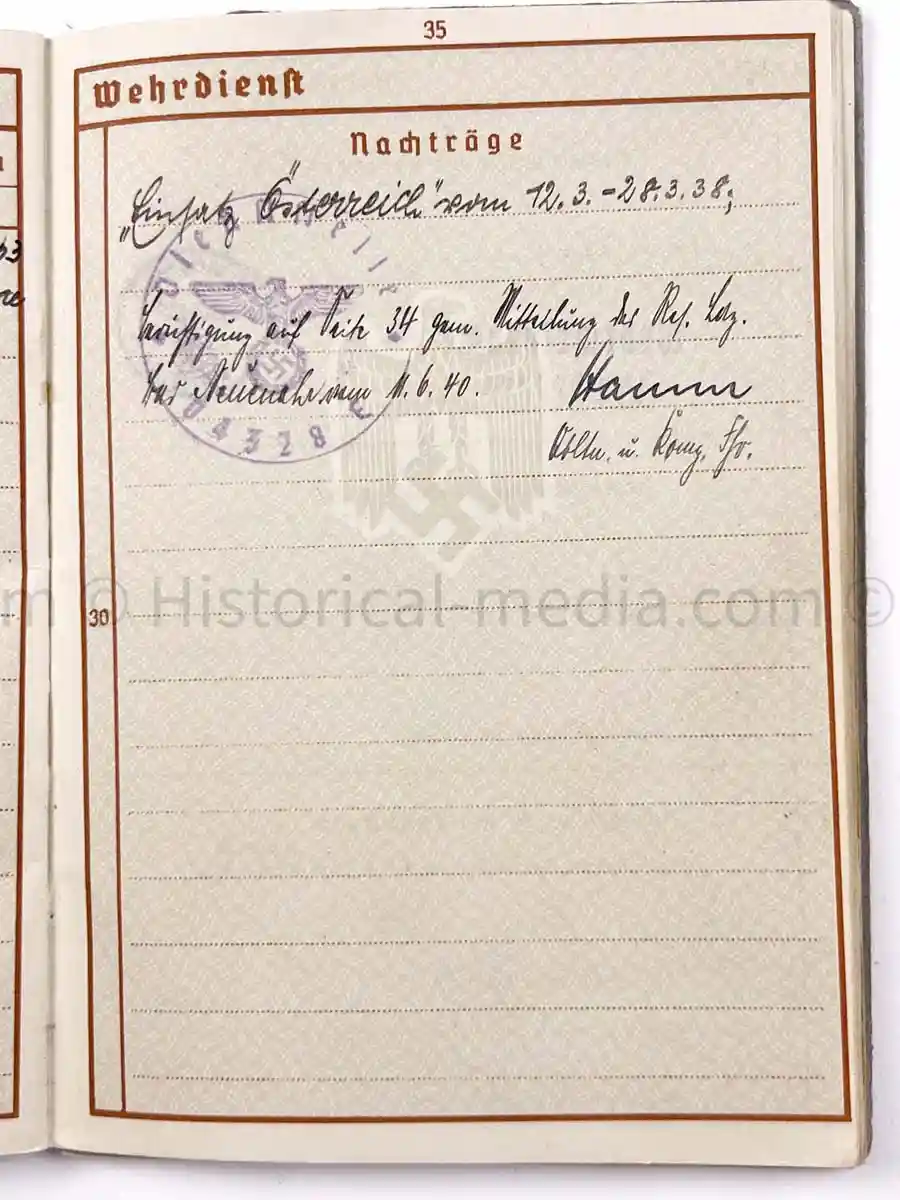 35
Wehrdienst
Nachträge
„Einsatz Österreich" vom 12.3.-28.3.38;
Berichtigung auf Seite 34 gem. Mitteilung des Res. Laz.
Bad Neuenahr vom 11.6.40. Hamm
Obltn. u. Komp. Fhr.
Dienststelle
04328 E
30
© Historical-media.com ©